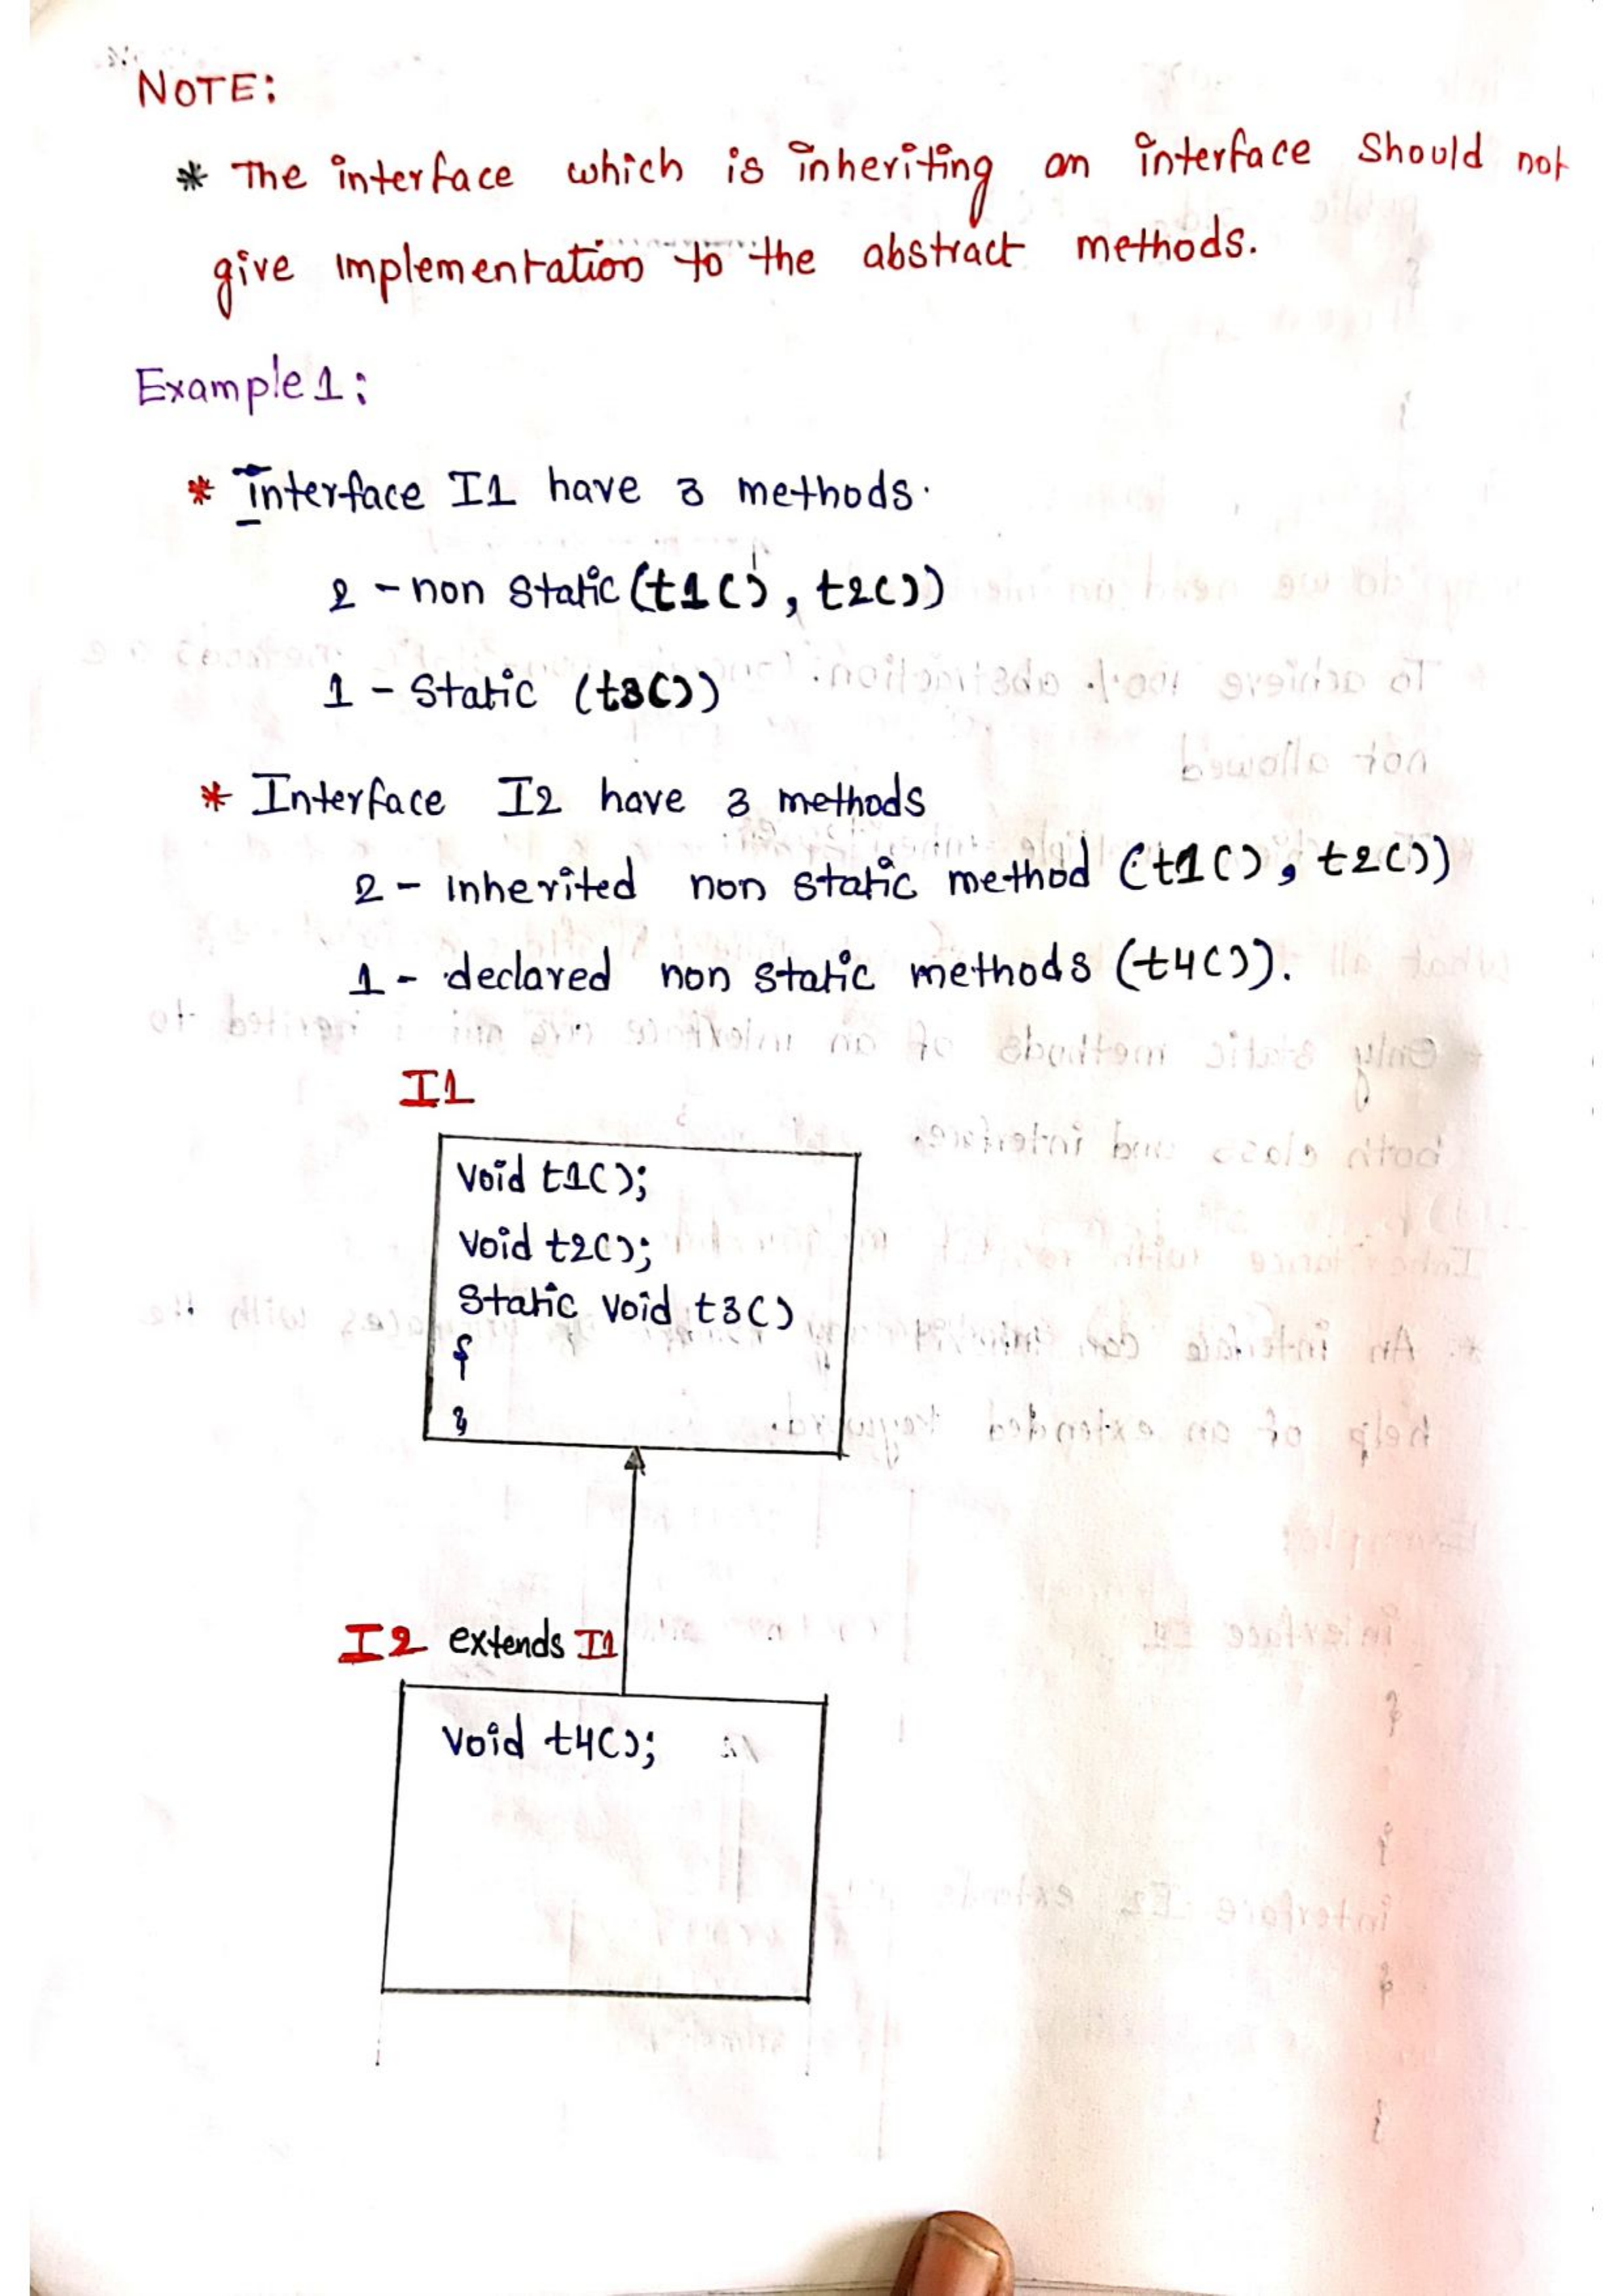 NOTE:
* The interface which is inheriting an interface Should not
give implementation to the abstract methods.
Example 1:
* interface I1 have 3 methods.
2 - non static (t1(), t2())
1 - Static (t3())
* Interface I2 have 3 methods
2 - inherited non static method (t1(), t2())
1 - declared non static methods (t4()).
I1
Void t1();
Void t2();
Static void t3()
{
}
I2 extends I1
Void t4();